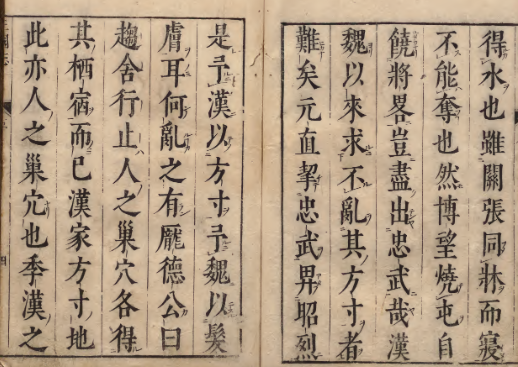 得水也雖關張同牀而寢
不能奪也然博望燒屯自
饒將畧豈盡出忠武哉漢
魏以來求不亂其方寸者
難矣元直挈忠武畀昭烈
是予漢以方寸予魏以髮
膚耳何亂之有龐德公曰
趨舍行止人之巢穴各得
其栖宿而已漢家方寸地
此亦人之巢穴也季漢之
四